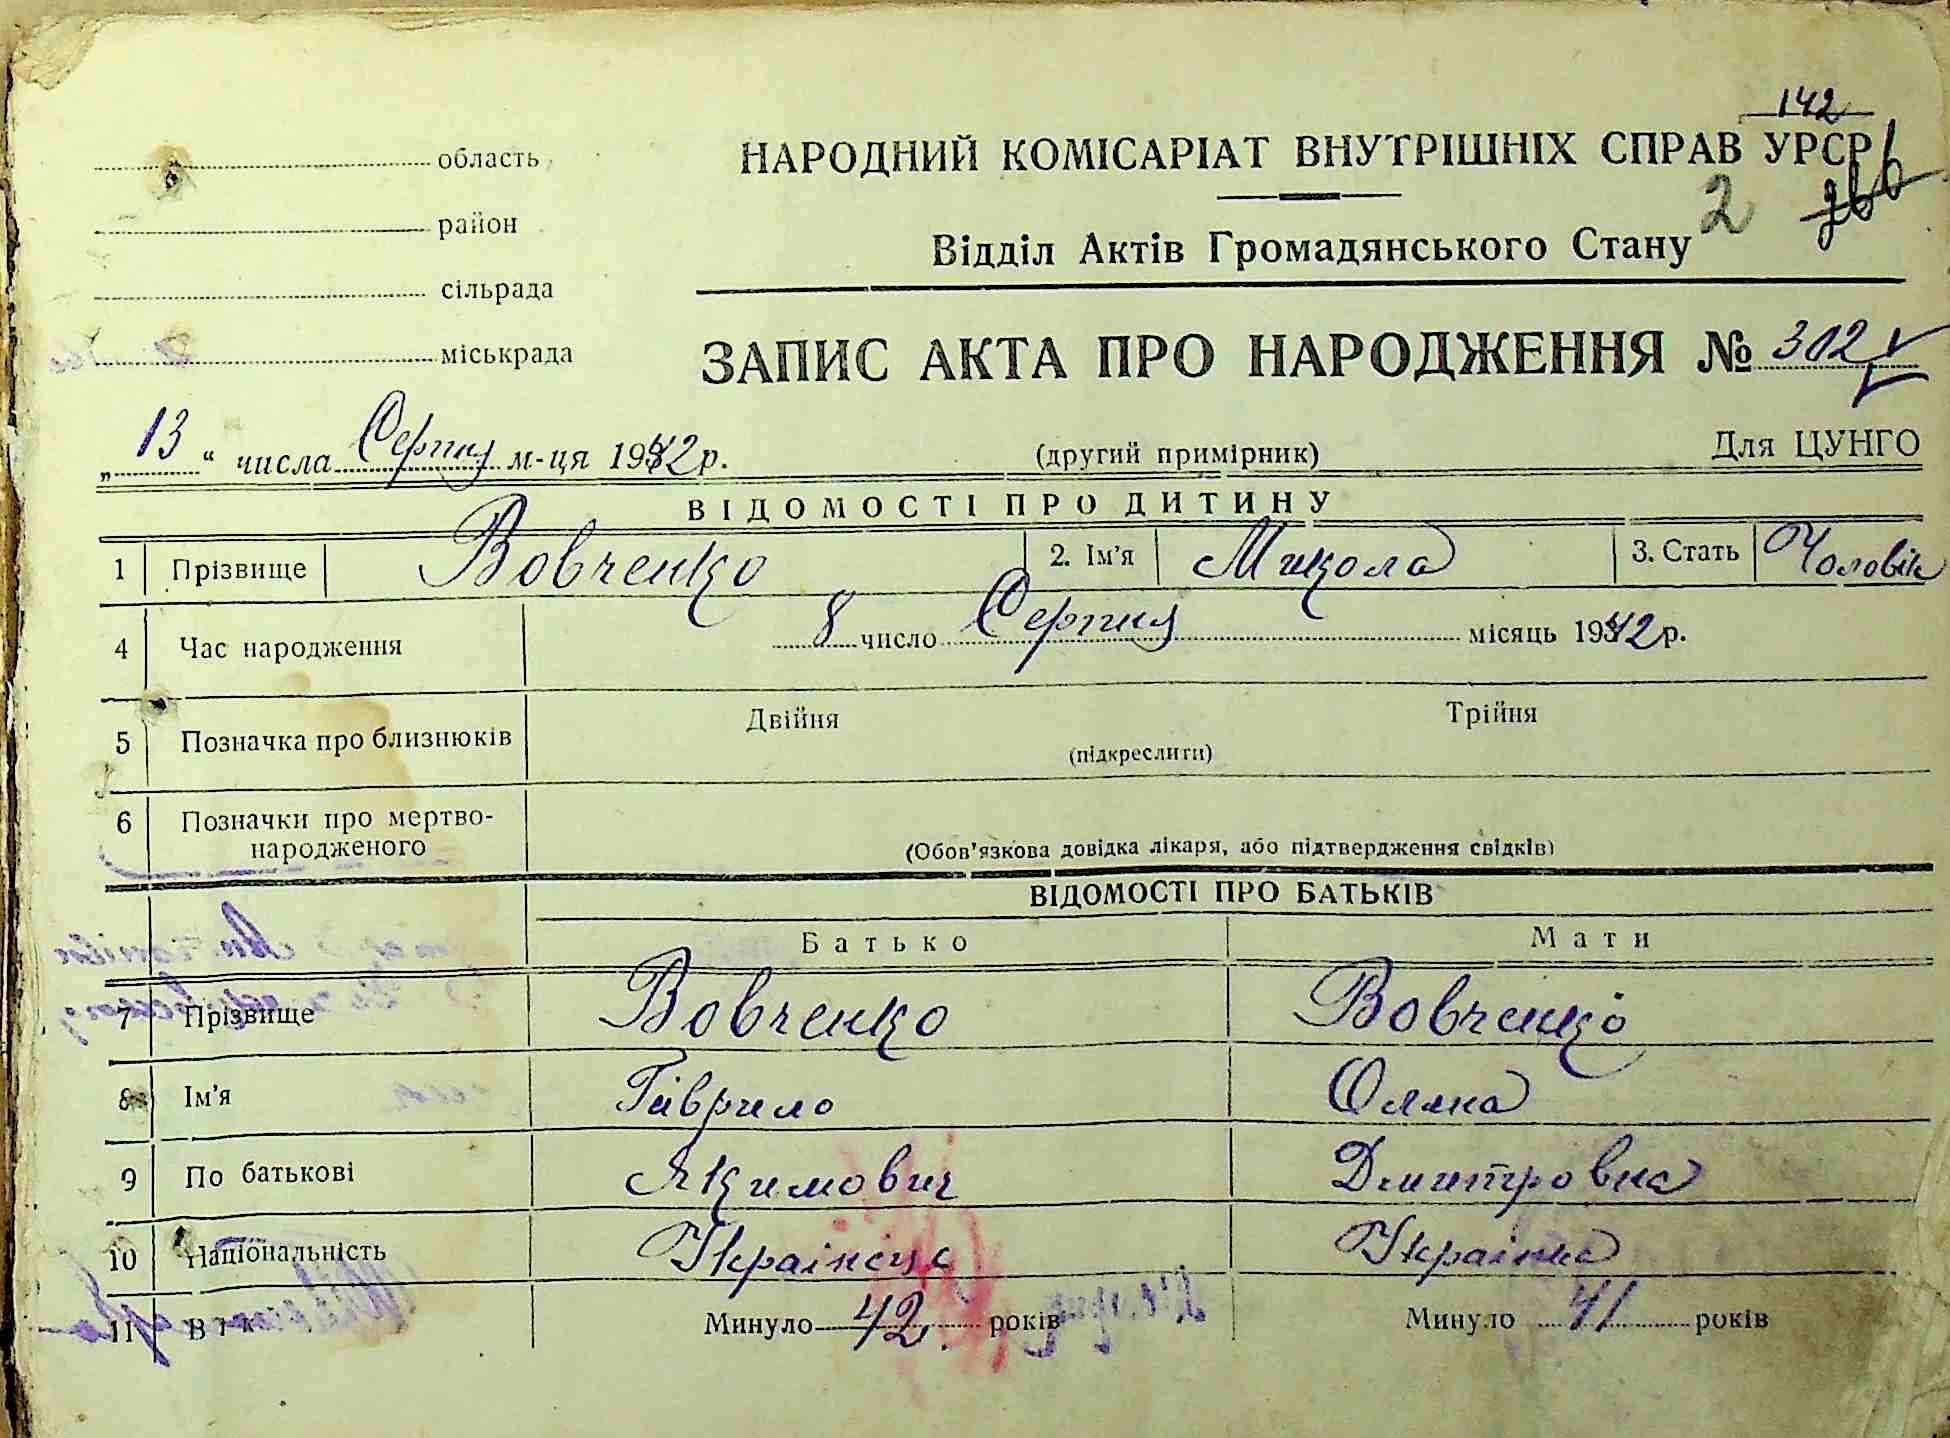 142
область
район
сільрада
міськрада
НАРОДНИЙ КОМІСАРІАТ ВНУТРІШНІХ СПРАВ УРСР
2
Відділ Актів Громадянського Стану
ЗАПИС АКТА ПРО НАРОДЖЕННЯ № 312
„13“ числа Серпня м-ця 1942 р.
(другий примірник)
Для ЦУНГО
ВІДОМОСТІ ПРО ДИТИНУ
1 Прізвище Вовченко 2. Ім'я Микола 3. Стать Чоловік
4 Час народження 8 число Серпня місяць 1942 р.
5 Позначка про близнюків Двійня Трійня
(підкреслити)
6 Позначки про мертво-
народженого
(Обов'язкова довідка лікаря, або підтвердження свідків)
ВІДОМОСТІ ПРО БАТЬКІВ
Батько Мати
7 Прізвище Вовченко Вовченко
8 Ім'я Гаврило Оляна
9 По батькові Якимович Дмитровна
10 Національність Українець Українка
11 Вік Минуло 42 років Минуло 41 років